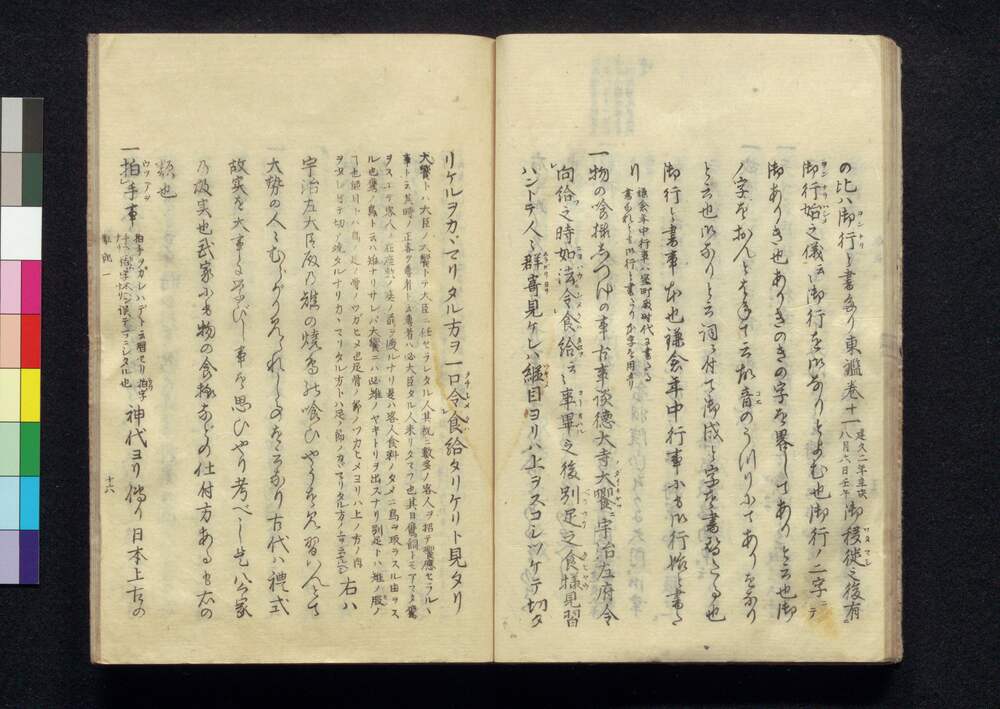 の比ハ御行と書多り東鑑巻十一建久二年辛亥八月六日壬午御移徙之後有
御行始之儀云々御行をみありきとよむ也御行ノ二字ニテ
みありき也ありきのきの字を畧してありと云也御
ノ字をおんとよまずして云お音のうつりにてありをなり
と云也おなりと云詞ニ付て御成と字を書あたる也
御行と書事本也鎌倉年中行事にも御行始と書た
り鎌倉年中行事ハ室町殿時代に書たる書なれとも御行と書たり本字を用たり
一物の喰様しつけの事古事談徳大寺大饗ニ宇治左府令
向給之時如法令食給云々事畢之後別足之食様見習
ハントテ人々群寄見ケレハ継目ヨリハ上ヲスコシツケテ切タ
リケルヲカヽマリタル方ヲ一口令食給タリケリト見タリ
大饗トハ大臣ノ大饗トテ大臣ニ任セラレタル人其祝ニ数多ノ客人ヲ招テ饗應セラルヽ
事ト云其時ノ正客ヲ尊者ト云尊者ハ必大臣タル人来リタマフ也其日鷹飼トモアマタ鷹
ヲスエテ客人ノ在座敷ノ庭ノ前ヲ通ルナリ是ハ客人食料ノタメニ鳥ヲ取ラスル由ヲス
ル也鷹ノ鳥ト云ハ雉ナリサレバ大饗ニハ必雉ノヤキトリヲ出スナリ別足トハ雉ノ股ノ
ヿ也継目トハ鳥ノ足ノ骨ノツガヒメ也足骨ノ節ノツカヒメヨリハ上ノ方ノ肉
右ハ
宇治左大臣殿乃雉の焼鳥の喰ひやうを見習ハんとて
大勢の人々むらがり見られしとのことなり古代ハ禮式
故実を大事にまなびし事を思ひやり考べし是ハ公家
乃故実也武家にも物の食様などの仕付方あるも右の
類也
一拍手事
ウツテヲ
神代ヨリ傳り日本上古の
十六